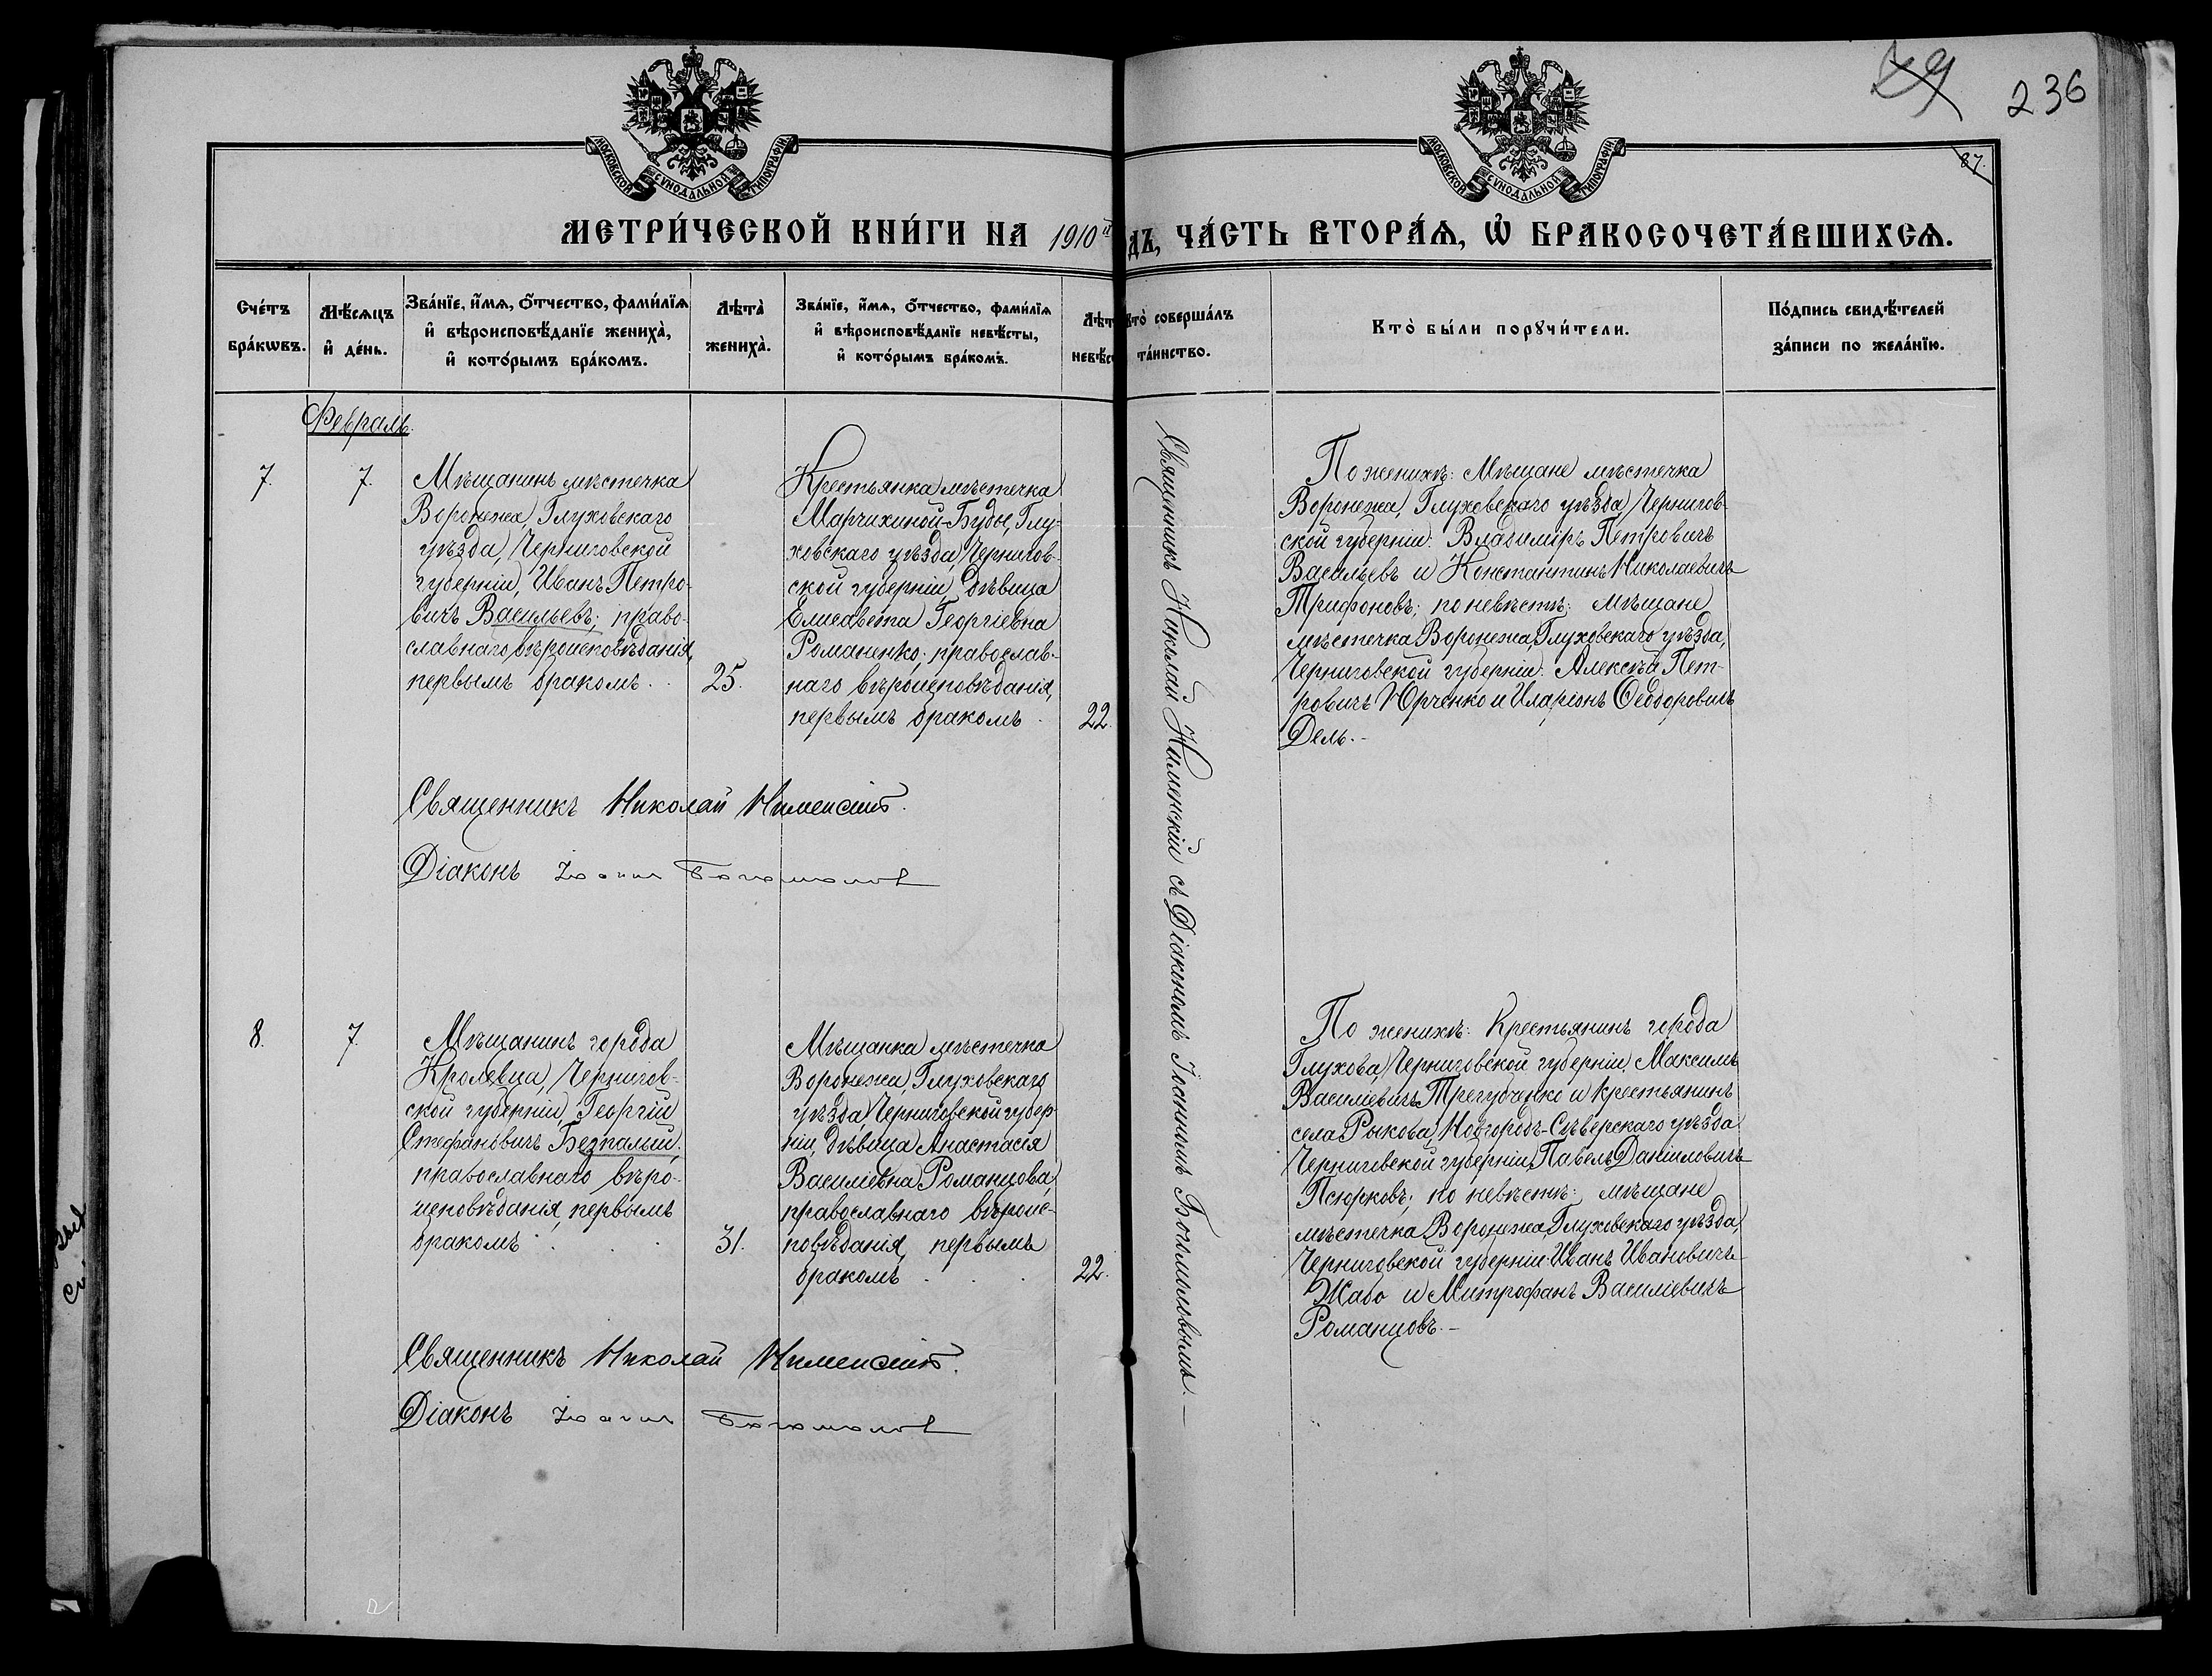 49 236
87.
МОСКОВСКОЙ СѴНОДАЛЬНОЙ ТИПОГРАФІИ
МОСКОВСКОЙ СѴНОДАЛЬНОЙ ТИПОГРАФІИ
МЕТРИ́ЧЕСКОЙ КНИ́ГИ НА 1910й ДЪ, ЧА́СТЬ ВТОРА́Ѧ, Ѡ҆ БРАКОСОЧЕТА́ВШИХСѦ.
Сче́тъ бра́кѡвъ.
Мѣ́сѧцъ и҆ де́нь.
Зва́нїе, и҆́мѧ, ѻ҆́тчество, фами́лїѧ и҆ вѣроисповѣ́данїе жениха̀, и҆ кото́рымъ бра́комъ.
Лѣта̀ жениха̀.
Зва́нїе, и҆́мѧ, ѻ҆́тчество, фами́лїѧ и҆ вѣроисповѣ́данїе невѣ́сты, и҆ кото́рымъ бра́комъ.
Лѣт невѣ́с
кто̀ соверша́лъ та́инство.
Кто̀ бы́ли порꙋчи́тели.
По́дпись свидѣ́телей за́писи по жела́нїю.
Февраль.
7.
7.
Мѣщанинъ мѣстечка
Воронежа, Глуховскаго
уѣзда, Черниговской
губерніи, Иванъ Петро-
вичъ Васильевъ; право-
славнаго вѣроисповѣданія,
первымъ бракомъ.
25.
Крестьянка мѣстечка
Марчихиной-Буды, Глу-
ховскаго уѣзда, Чернигов-
ской губерніи, дѣвица
Елисавета Георгіевна
Романенко; православ-
наго вѣроисповѣданія,
первымъ бракомъ.
22.
Священникъ Николай Нименскій съ Діакономъ Іоанномъ Богомоловымъ.
По женихѣ: Мѣщане мѣстечка
Воронежа, Глуховскаго уѣзда, Чернигов-
ской губерніи: Владиміръ Петровичъ
Васильевъ и Константинъ Николаевичъ
Трифоновъ; по невѣстѣ: мѣщане
мѣстечка Воронежа, Глуховскаго уѣзда,
Черниговской губерніи: Алексѣй Пет-
ровичъ Юрченко и Иларіонъ Ѳеодоровичъ
Дель.
Священникъ Николай Нименскій.
Діаконъ Іоаннъ Богомолов
8.
7.
Мѣщанинъ города
Кролевца, Чернигов-
ской губерніи, Георгій
Стефановичъ Безпалый,
православнаго вѣро-
исповѣданія, первымъ
бракомъ
31.
Мѣщанка мѣстечка
Воронежа, Глуховскаго
уѣзда, Черниговской губер-
ніи, дѣвица Анастасія
Василіевна Романцова,
православнаго вѣроис-
повѣданія, первымъ
бракомъ
22.
По женихѣ: Крестьянинъ города
Глухова, Черниговской губерніи, Максимъ
Василіевичъ Трегубченко и крестьянинъ
села Рыкова, Новгородъ-Сѣверскаго уѣзда
Черниговской губерніи, Павелъ Даніиловичъ
Псюрковъ; по невѣстѣ: мѣщане
мѣстечка Воронежа, Глуховскаго уѣзда,
Черниговской губерніи: Иванъ Ивановичъ
Жабо и Митрофанъ Василіевичъ
Романцовъ.
Священникъ Николай Нименскій.
Діаконъ Іоаннъ Богомолов